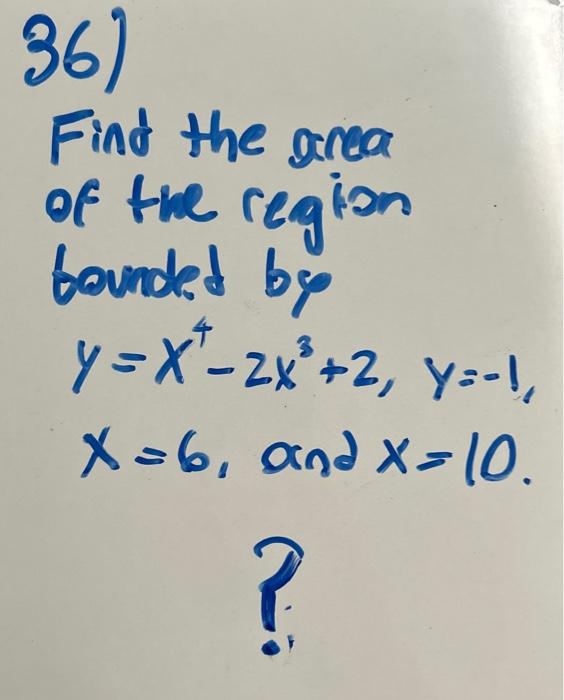 36)
Find the area
of the region
bounded by
y = x⁴ - 2x³ + 2, y = -1,
x = 6, and x = 10.
?